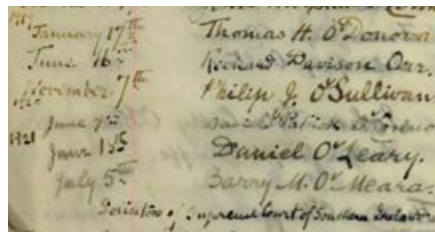 1919
January 17th Thomas H. O'Donovan
June 16th Richard Davison Orr.
November 7th Philip J. O'Sullivan
1920
June 7th Daniel Patrick
1921
June 18th Daniel O'Leary.
July 5th Barry M. O'Meara.
Solicitors of Supreme Court of Southern Ireland